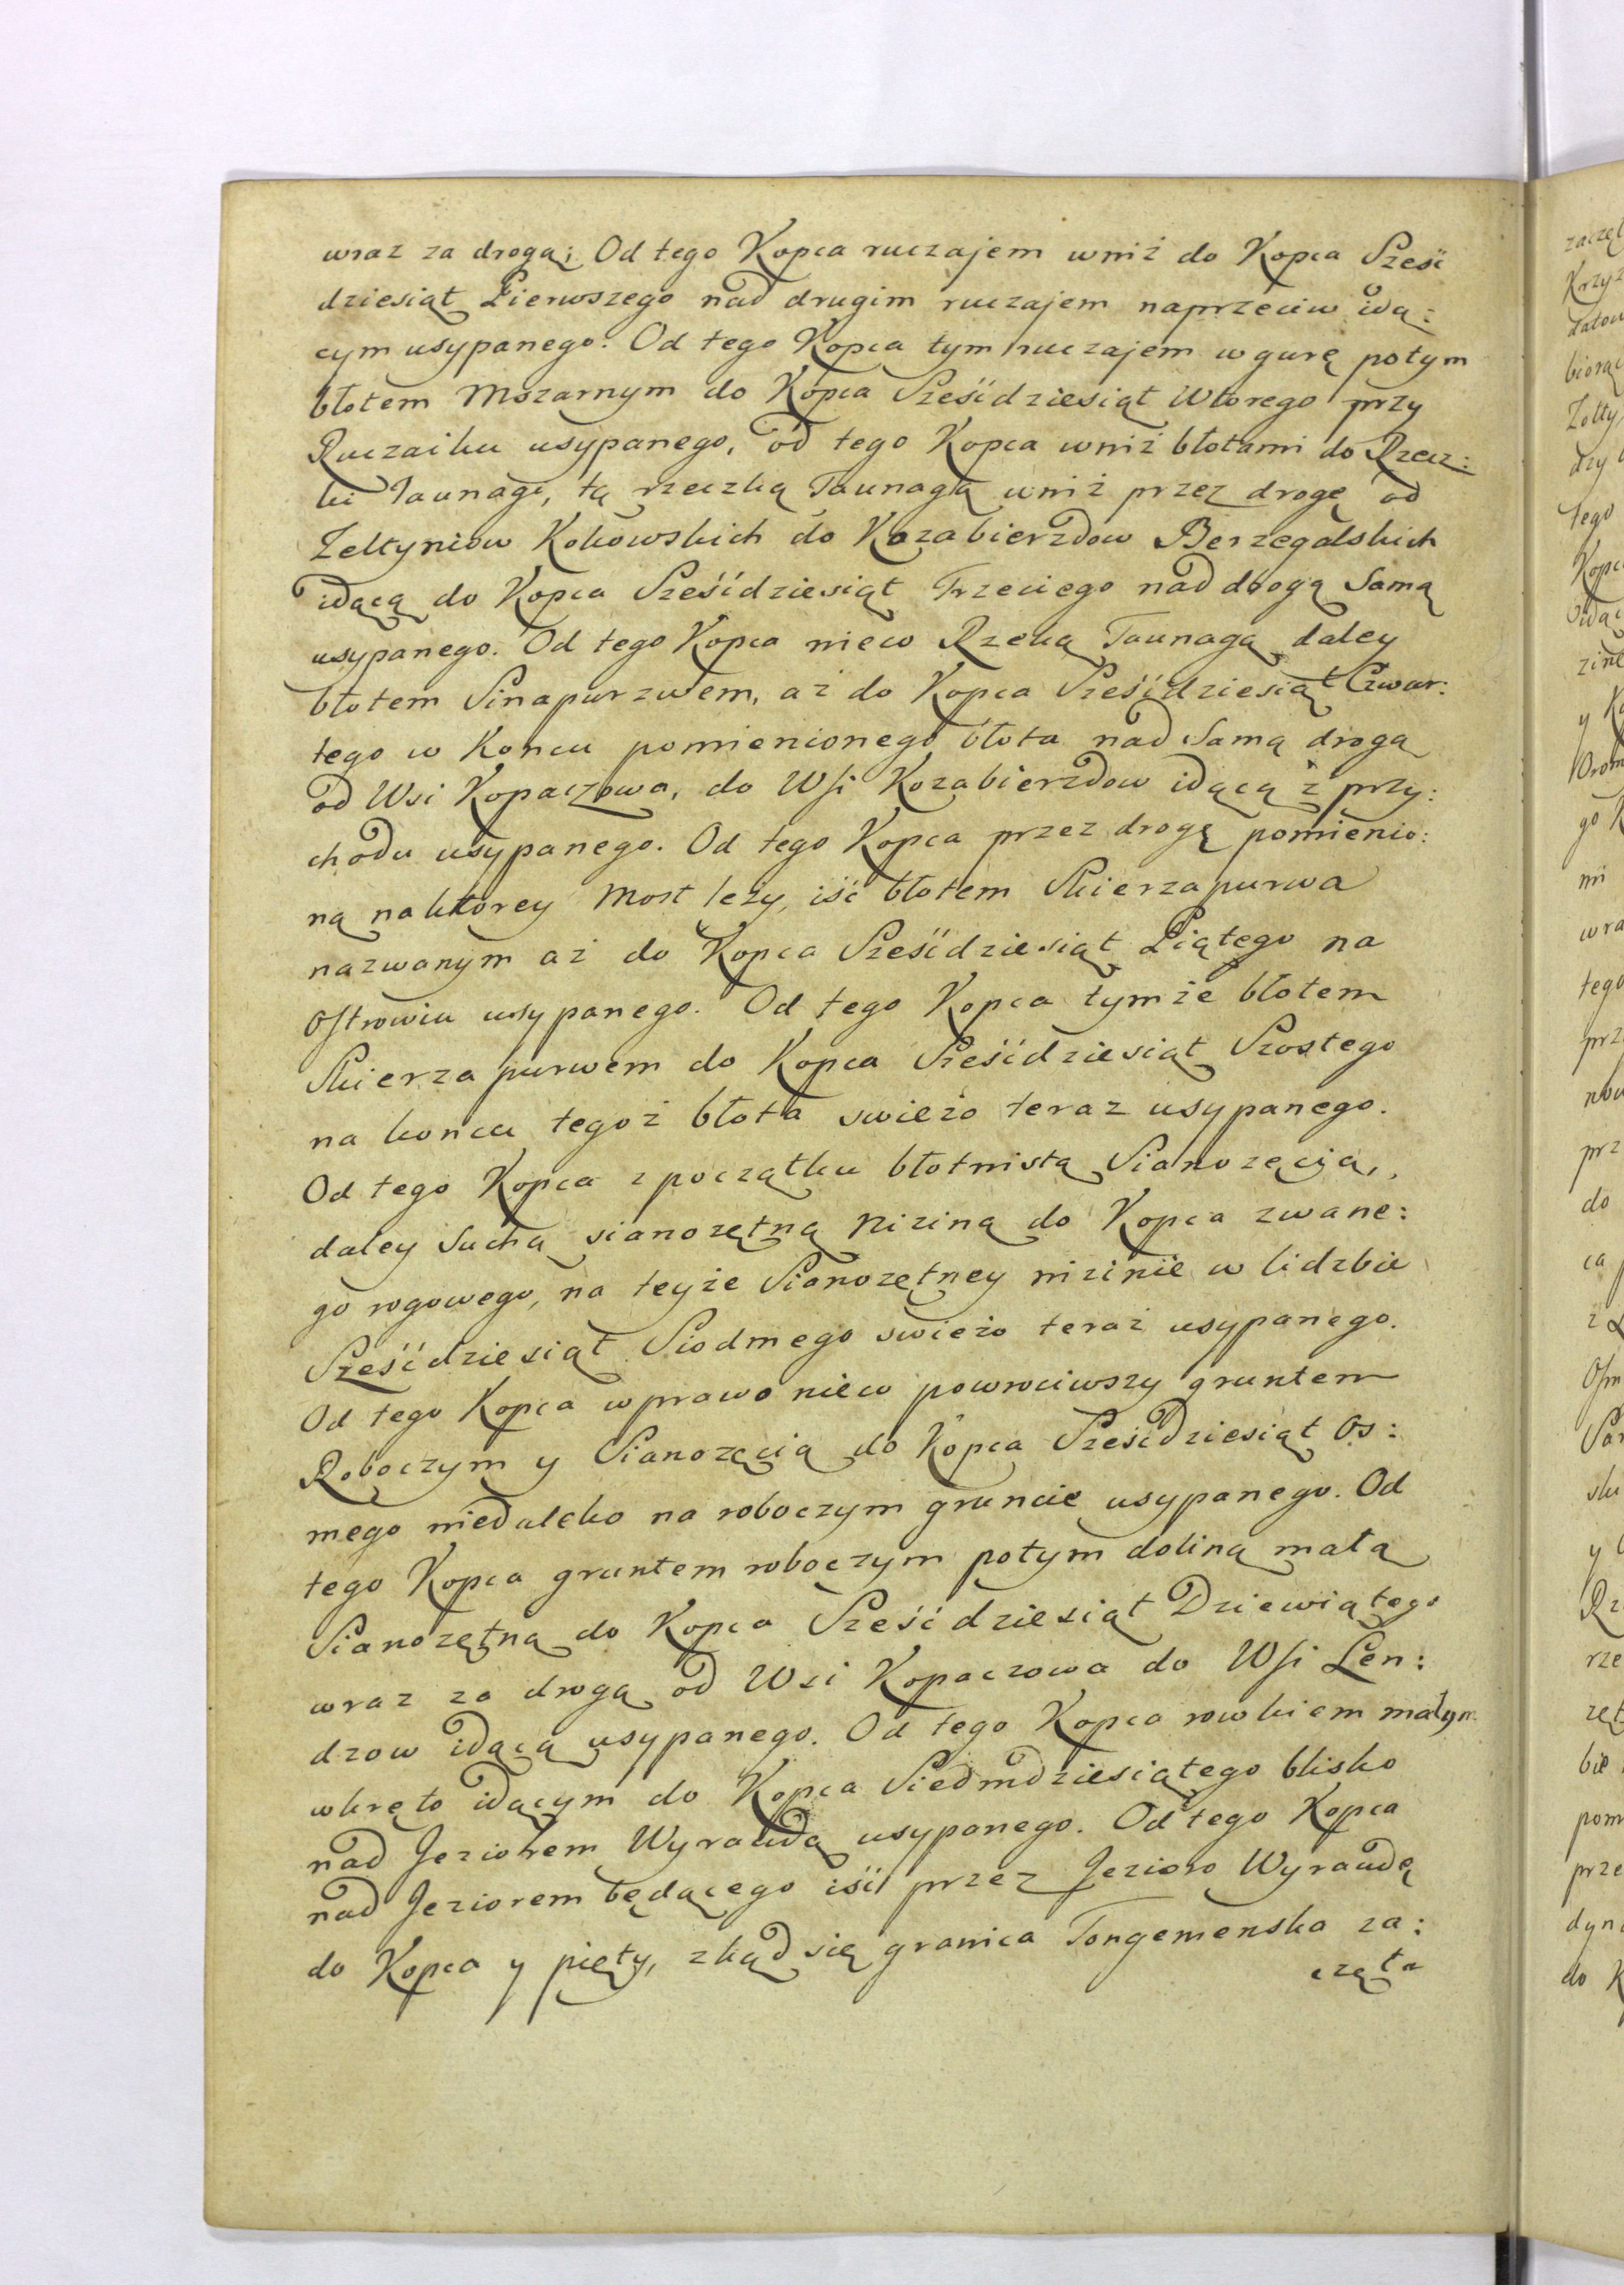 wraz za drogą; Od tego Kopca ruczajem wniż do Kopca Sześć
dziesiąt Pierwszego nad drugim ruczajem naprzeciw idą:
cym usypanego. Od tego Kopca tym ruczajem w gurę potym
błotem Mszarnym do Kopca Sześćdziesiąt Wtorego przy
Ruczaiku usypanego, od tego Kopca wniż błotami do Rzecz:
ki Taunagi, tą rzeczką Taunagą wniż przez drogę od
Zeltyniow Kokowskich do Kazabierzdow Berzegalskich
idącą do Kopca Sześćdziesiąt Trzeciego nad drogą Samą
usypanego. Od tego Kopca nieco Rzeką Taunagą daley
błotem Sinapurzwem, aż do Kopca Sześćdziesiąt Czwar:
tego w Koncu pomienionego błota nad Samą drogą
od Wsi Kopaczowa, do Wsi Kozabierzdow idącą z przy:
chodu usypanego. Od tego Kopca przez drogę pomienio:
ną na ktorey Most leży, iść błotem Skierzapurwa
nazwanym aż do Kopca Sześćdziesiąt Piątego na
Ostrowiu usypanego. Od tego Kopca tymże błotem
Skierzapurwem do Kopca Sześćdziesiąt Szostego
na koncu tegoż błota swieżo teraz usypanego.
Od tego Kopca z początku błotnistą Sianożęcią,
daley Suchą sianożętną niziną do Kopca zwane:
go rogowego, na teyże Sianożętney nizinie w lidzbie
Sześćdziesiąt Siodmego swieżo teraz usypanego.
Od tego Kopca w prawo nieco powrociwszy gruntem
Roboczym y Sianożęcią do Kopca Sześćdziesiąt Os:
mego niedaleko na roboczym gruncie usypanego. Od
tego Kopca gruntem roboczym potym doliną małą
Sianożętną do Kopca Sześćdziesiąt Dziewiątego
wraz za drogą od Wsi Kopaczowa do Wsi Len:
dzow idącą usypanego. Od tego Kopca rowkiem małym
wkręto idącym do Kopca Siedmdziesiątego blisko
nad Jeziorem Wyraudą usypanego. Od tego Kopca
nad Jeziorem będącego iść przez Jezioro Wyraudę
do Kopca y pięty, zkąd się granica Tongemenska za:
częta